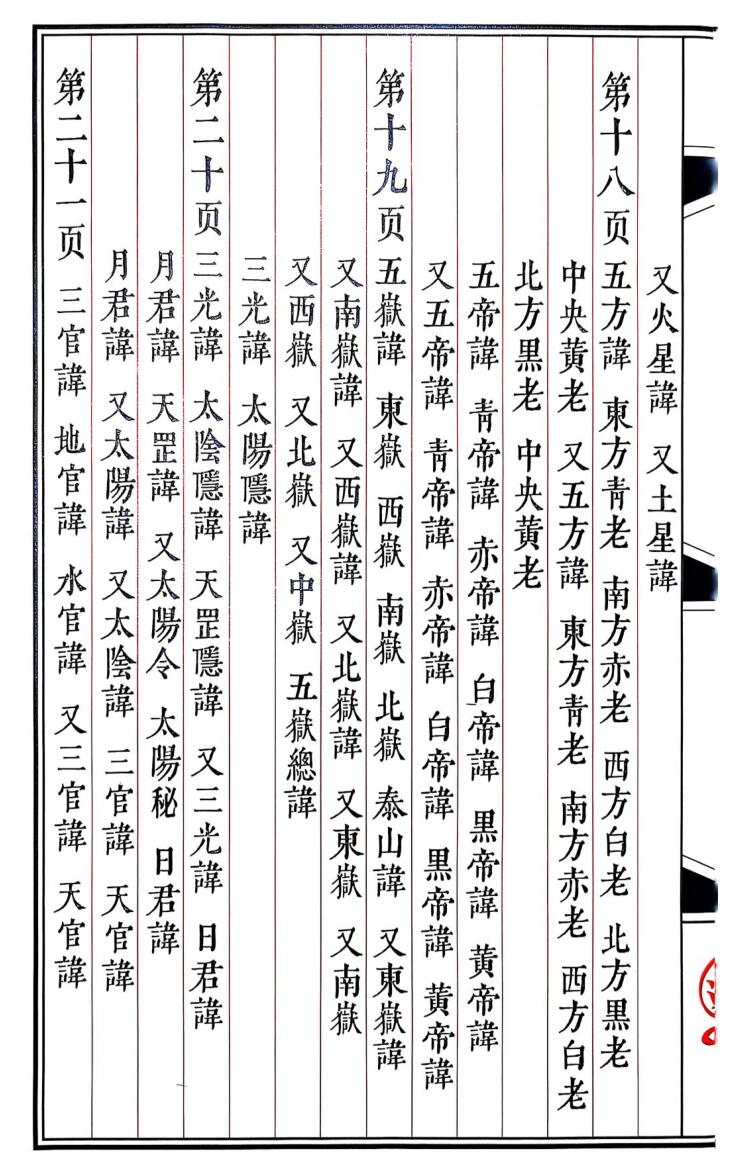 又火星諱 又土星諱
第十八页 五方諱 東方靑老 南方赤老 西方白老 北方黒老
中央黃老 又五方諱 東方靑老 南方赤老 西方白老
北方黒老 中央黃老
五帝諱 靑帝諱 赤帝諱 白帝諱 黒帝諱 黃帝諱
又五帝諱 靑帝諱 赤帝諱 白帝諱 黒帝諱 黃帝諱
第十九页 五嶽諱 東嶽 西嶽 南嶽 北嶽 泰山諱 又東嶽諱
又南嶽諱 又西嶽諱 又北嶽諱 又東嶽 又南嶽
又西嶽 又北嶽 又中嶽 五嶽總諱
三光諱 太陽隱諱
第二十页 三光諱 太陰隱諱 天罡隱諱 又三光諱 日君諱
月君諱 天罡諱 又太陽令 太陽秘 日君諱
月君諱 又太陽諱 又太陰諱 三官諱 天官諱
第二十一页 三官諱 地官諱 水官諱 又三官諱 天官諱